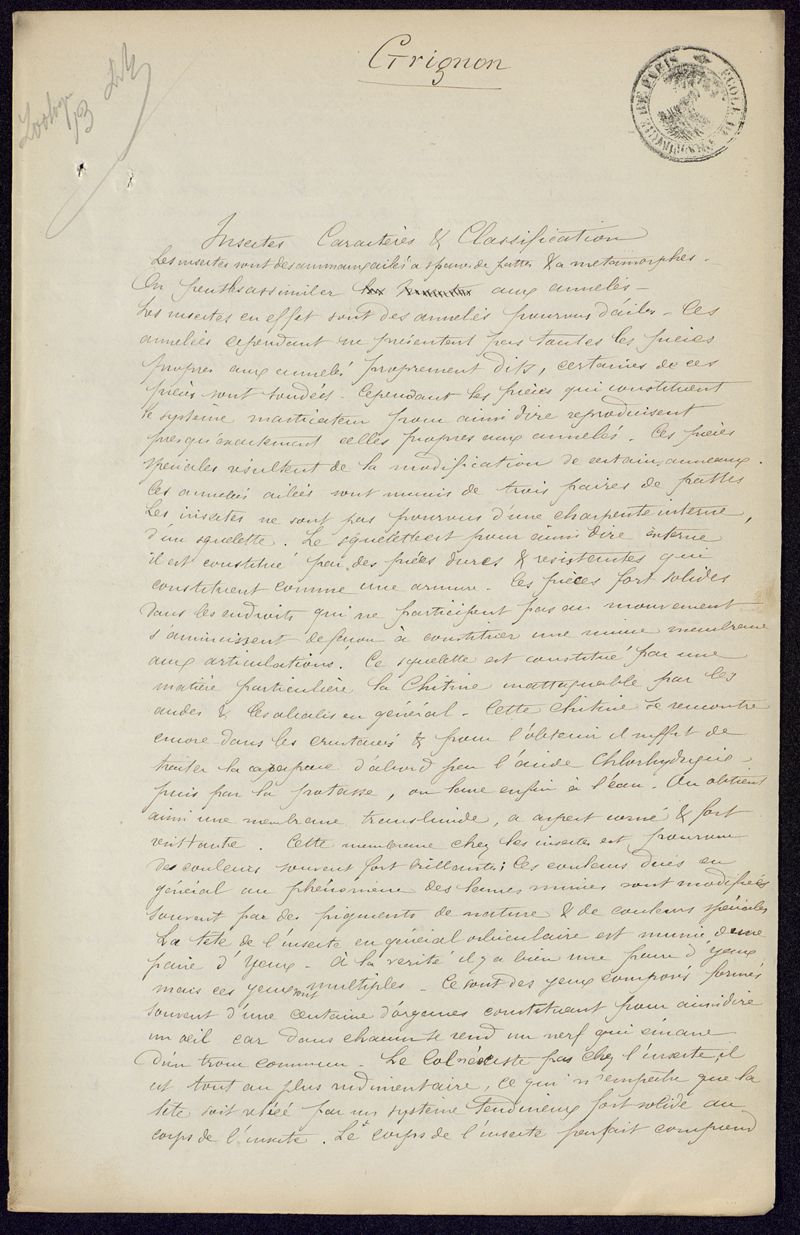 Grignon
Zoologie
13
ÉCOLE DE PHARMACIE DE PARIS
Insectes Caractères & Classification
Les insectes sont des animaux ailés a 3 paires de pattes & a metamorphes.
On peut les assimiler aux annelés —
Les insectes en effet sont des annelés pourvus d'ailes — Ces
annelées cependant ne présentent pas toutes les pièces
propres aux annelés proprement dits, certaines de ces
pièces sont soudées. Cependant les pièces qui constituent
le système masticateur pour ainsi dire reproduisent
presqu'exactement celles propres aux annelés. Ces pièces
spéciales résultent de la modification de certain anneaux.
Ces annelés ailées sont munis de trois paires de pattes
Les insectes ne sont pas pourvus d'une charpente interne,
d'un squelette. Le squelette est pour ainsi dire externe
il est constitué par des pièces dures & résistantes qui
constituent comme une armure. Ces pièces fort solides
dans les endroits qui ne participent pas au mouvement
s'amincissent de façon à constituer une mince membrane
aux articulations. Ce squelette est constitué par une
matière particulière la Chitine inattaquable par les
acides & les alcalis en général. Cette chitine se rencontre
encore dans les crustacés & pour l'obtenir il suffit de
traiter la carapace d'abord par l'acide Chlorhydrique
puis par la potasse, on lave enfin à l'eau. On obtient
ainsi une membrane translucide, a aspect corné & fort
résistante. Cette membrane chez les insectes est pourvue
des couleurs souvent fort brillantes; Ces couleurs dues en
général au phénomène des lames minces sont modifiées
souvent par des pigments de nature & de couleurs spéciales
La tête de l'insecte en général orbiculaire est munie d'une
paire d'Yeux — à la vérité il y a bien une paire d'Yeux
mais ces yeux sont multiples — Ce sont des yeux composés formés
souvent d'une centaine d'organes constituant pour ainsi dire
un oeil car dans chacun se rend un nerf qui émane
d'un tronc commun — Le Col n'existe pas chez l'insecte, il
est tout au plus rudimentaire, ce qui n'empêche que la
tête soit reliée par un système tendineux fort solide au
corps de l'insecte. Le corps de l'insecte parfait comprend